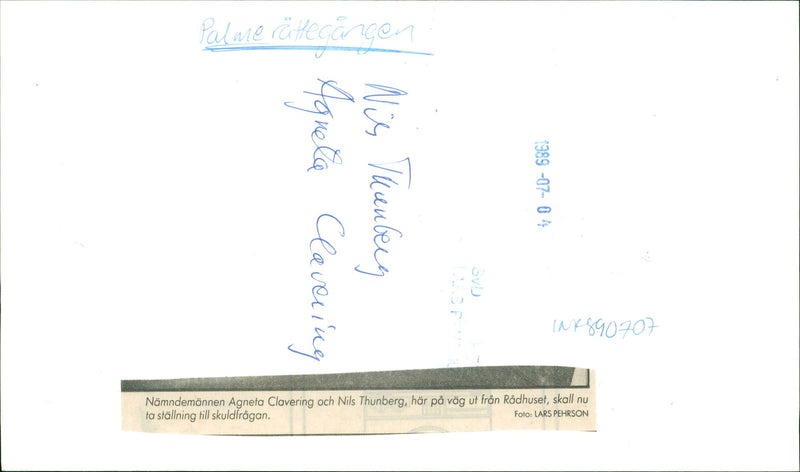 Palme rättegången
Nils Thunberg
Agneta Clavering
1989-07-04
SVD
INK 890707
Nämndemännen Agneta Clavering och Nils Thunberg, här på väg ut från Rådhuset, skall nu
ta ställning till skuldfrågan.
Foto: LARS PEHRSON